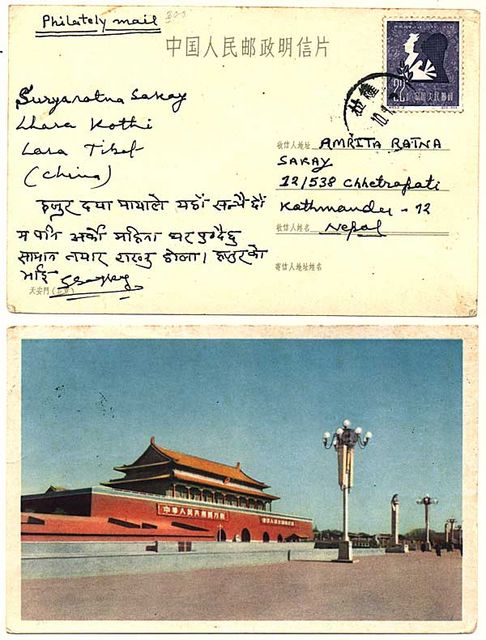 Philately mail
中国人民邮政明信片
中国人民邮政
Suryaratna Sakay
Lhasa Kothi
Lasa Tibet
(China)
收信人地址 AMRITA RATNA
SAKAY
12/538 Chhetrapati
Kathmandu - 12
收信人姓名 Nepal
寄信人地址姓名
हजुर दया मायाले यहाँ सन्चै छौं
म पनि अर्को महिना घर पुग्दैछु
सामान तयार राख्नु होला। हजुरको
भाई
天安门 (北京)
中华人民共和国万岁